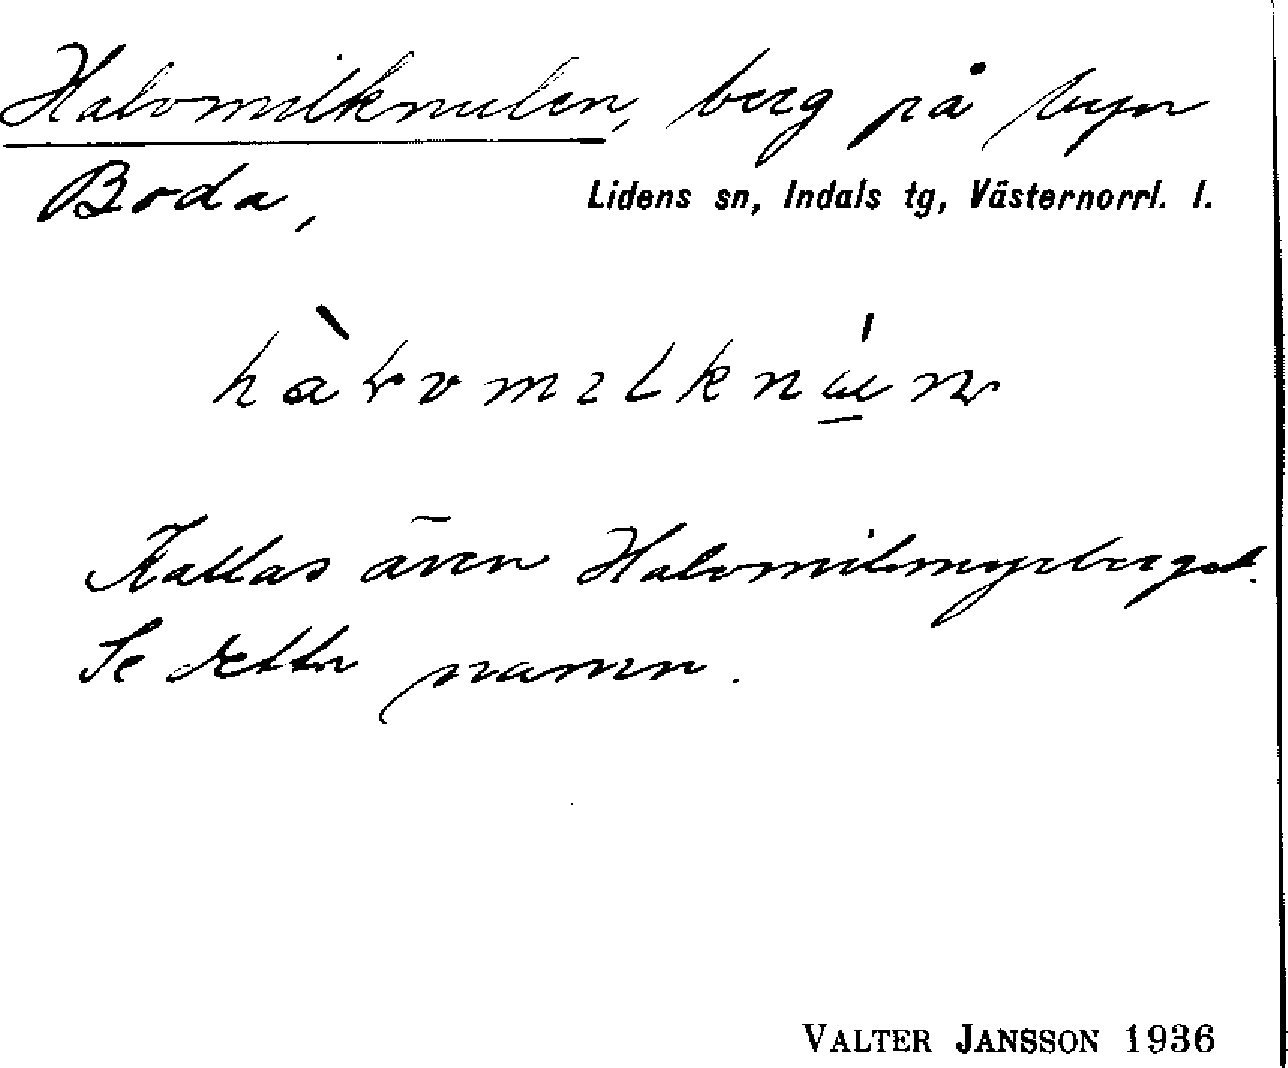 Halvmilknulen, berg på byn
Boda, Lidens sn, Indals tg, Västernorrl. l.
Kallas även Halvmilsmyrberget.
Se detta namn.
VALTER JANSSON 1936